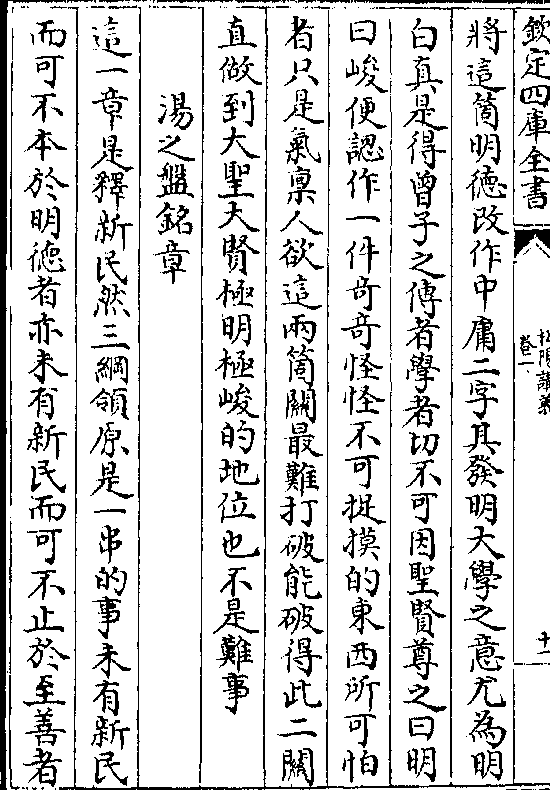 欽定四庫全書
松陽講義
卷一
十一
將這箇明德改作中庸二字其發明大學之意尤為明
白真是得曾子之傳者學者切不可因聖賢尊之曰明
曰峻便認作一件奇奇怪怪不可捉摸的東西所可怕
者只是氣稟人欲這兩箇關最難打破能破得此二關
直做到大聖大賢極明極峻的地位也不是難事
湯之盤銘章
這一章是釋新民然三綱領原是一串的事未有新民
而可不本於明德者亦未有新民而可不止於至善者